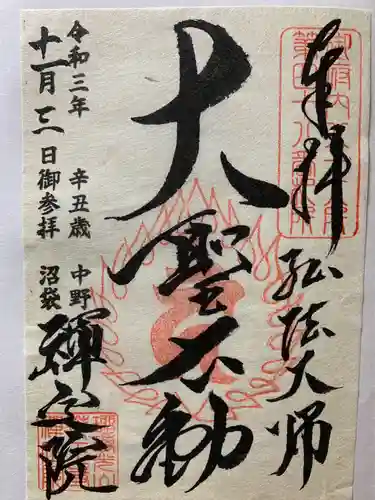 奉拝
弘法大師
大聖不動
令和三年 辛丑歳 中野
十一月三日御参拝 沼袋
禅定院